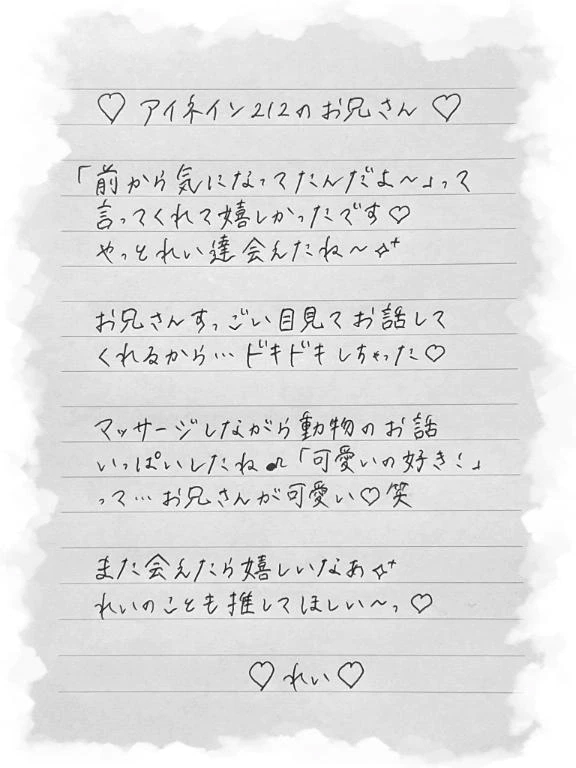 ♡ アイネイン212のお兄さん ♡
「前から気になってたんだよ～」って
言ってくれて嬉しかったです♡
やっとれい達会えたね～✧⁺
お兄さんすっごい目見てお話して
くれるから…ドキドキしちゃった♡
マッサージしながら動物のお話
いっぱいしたね♫「可愛いの好き！」
って…お兄さんが可愛い♡笑
また会えたら嬉しいなあ✧⁺
れいのことも推してほしい～っ♡
♡れい♡